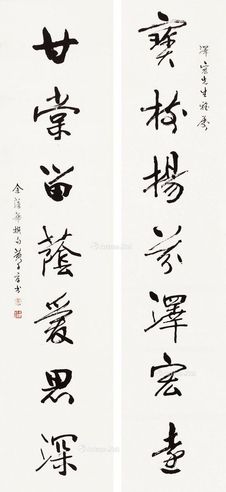 澤宏先生雅屬
寶樹揚芬澤宏遠
甘棠留蔭愛思深
撰句